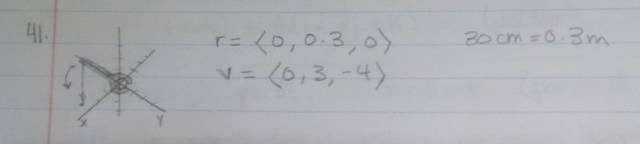 41.
r = ⟨0, 0.3, 0⟩ 30cm = 0.3m
v = ⟨0, 3, -4⟩
x y